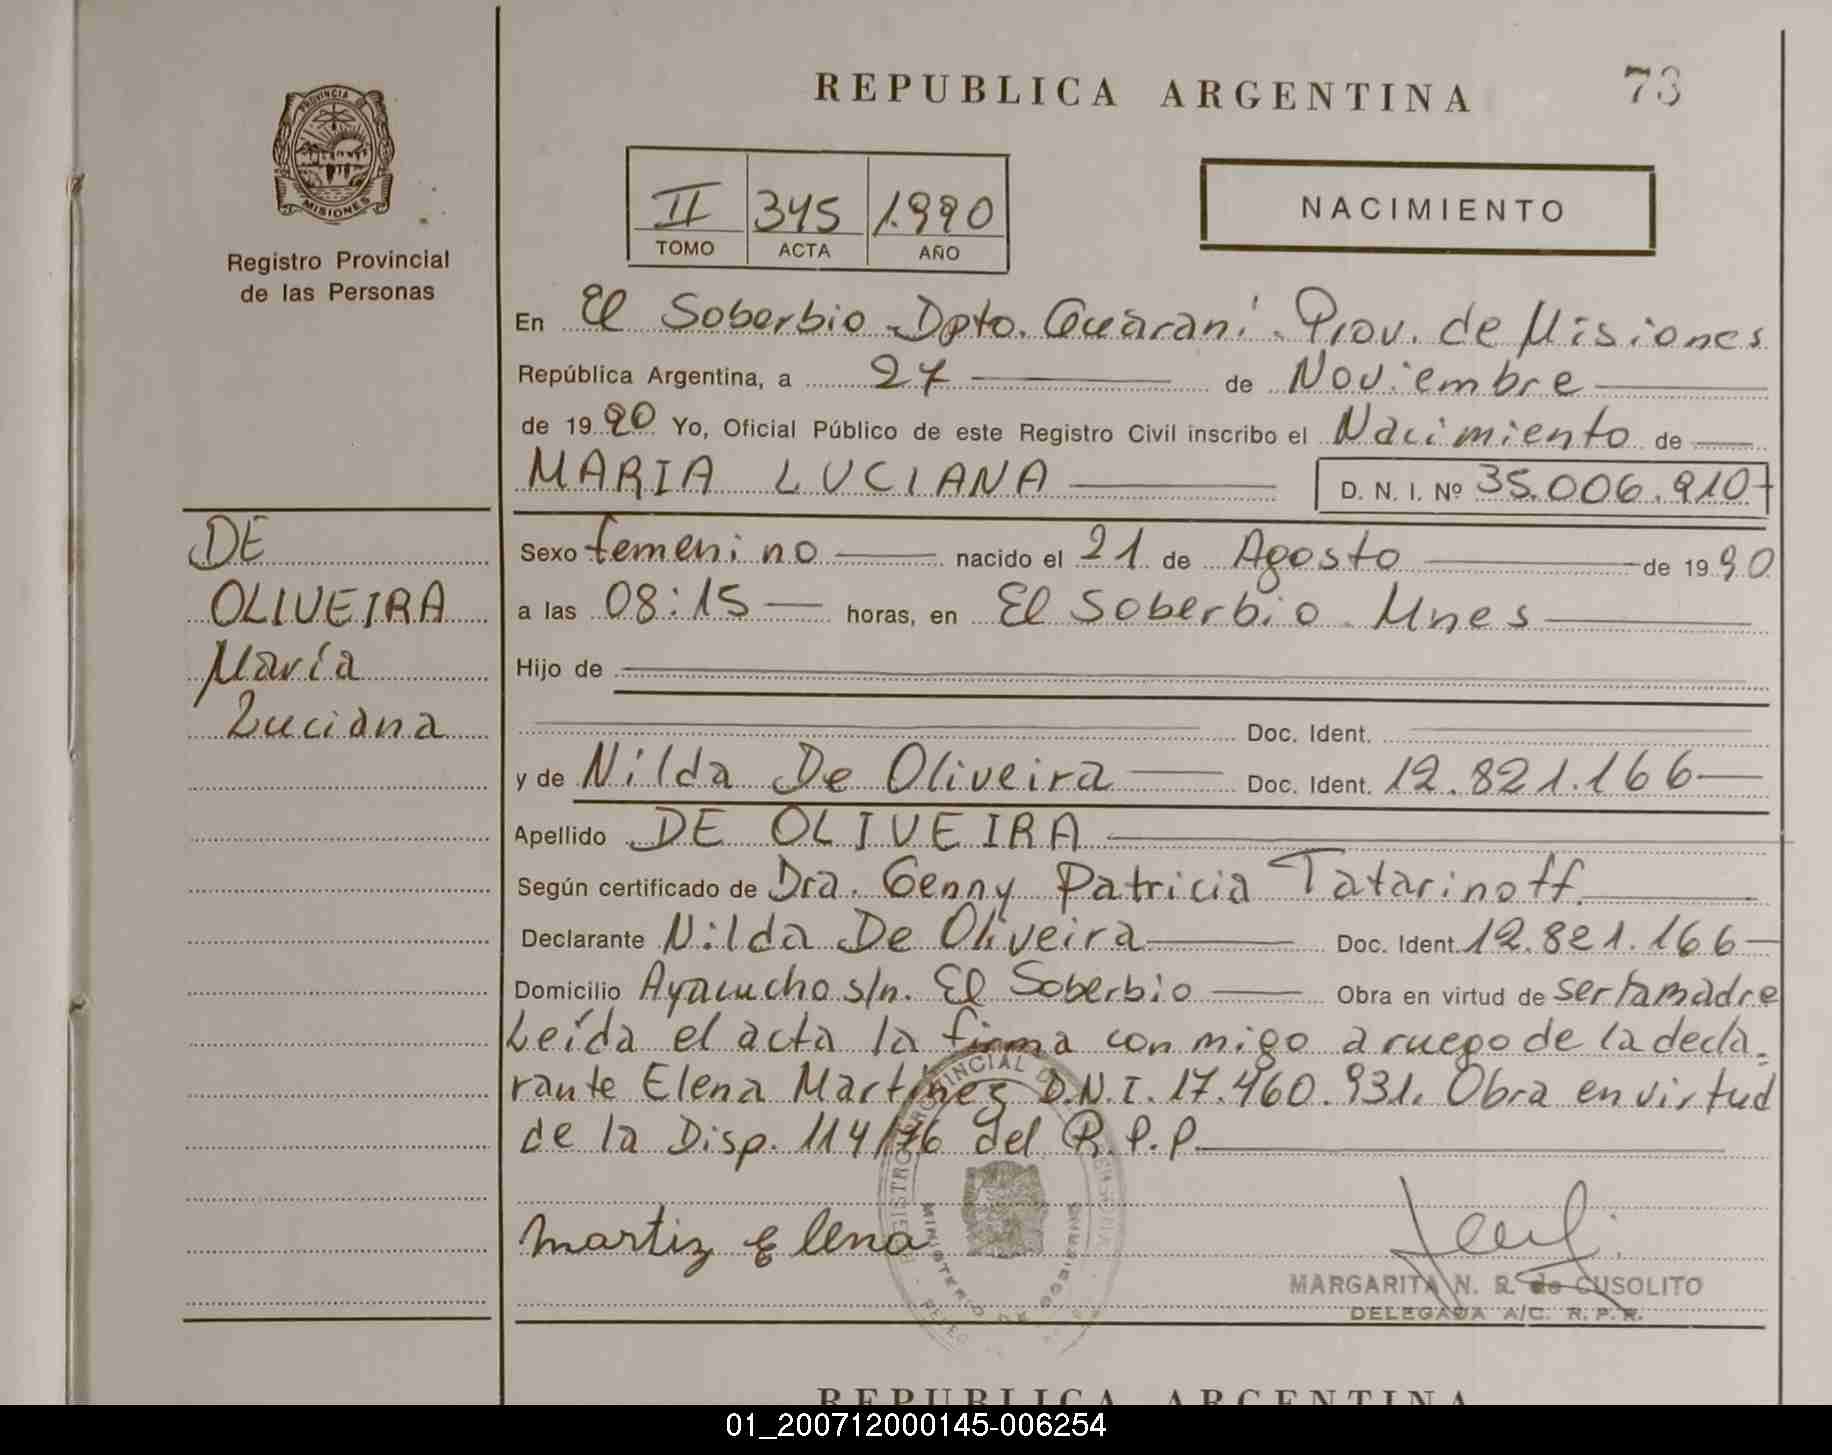 REPUBLICA ARGENTINA
73
PROVINCIA DE
MISIONES
Registro Provincial
de las Personas
II 345 1.990
TOMO ACTA AÑO
NACIMIENTO
En El Soberbio Dpto. Guaraní. Prov. de Misiones
República Argentina, a 27 de Noviembre
de 19 90 Yo, Oficial Público de este Registro Civil inscribo el Nacimiento de
MARIA LUCIANA D. N. I. Nº 35.006.910
DE
OLIVEIRA
María
Luciana
Sexo femenino nacido el 21 de Agosto de 19 90
a las 08:15 horas, en El Soberbio. Mnes
Hijo de
Doc. Ident.
y de Nilda De Oliveira Doc. Ident. 12.821.166
Apellido DE OLIVEIRA
Según certificado de Dra. Genny Patricia Tatarinoff.
Declarante Nilda De Oliveira Doc. Ident. 12.821.166
Domicilio Ayacucho s/n. El Soberbio Obra en virtud de ser la madre
Leída el acta la firma conmigo a ruego de la decla-
rante Elena Martínez D.N.I. 17.460.931. Obra en virtud
de la Disp. 114/76 del R.P.P
REGISTRO PROVINCIAL DE
MINISTERIO DE
martiz Elena
MARGARITA N. R. de CUSOLITO
DELEGADA A/C. R. P. R.
REPUBLICA ARGENTINA
01_200712000145-006254